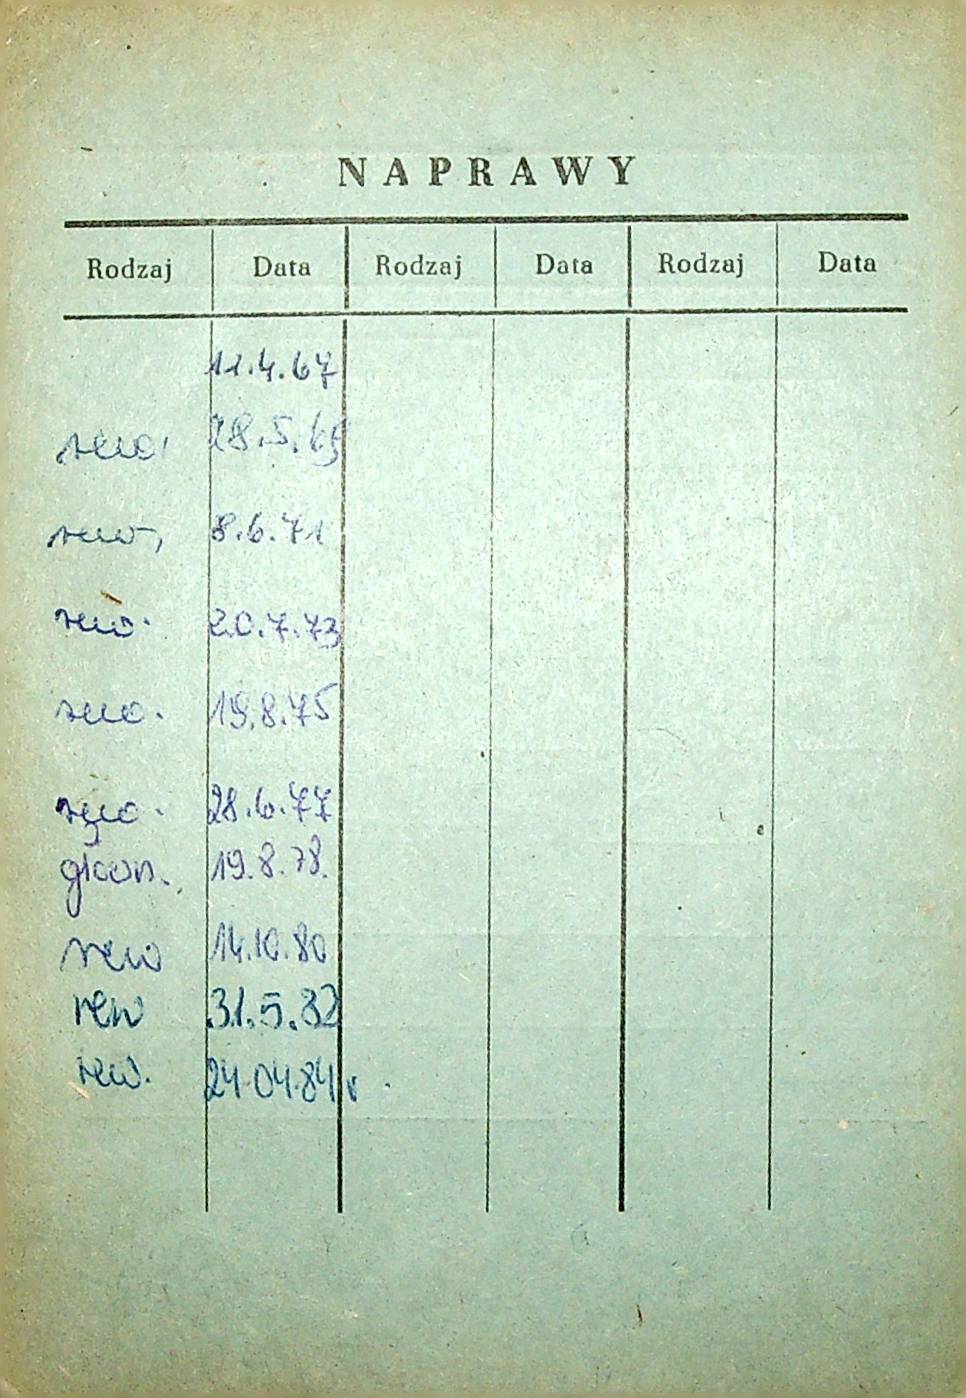 NAPRAWY
Rodzaj Data Rodzaj Data Rodzaj Data
11.4.67
rew. 28.5.69
rew. 8.6.71
rew. 20.7.73
rew. 19.8.75
rew. 28.6.77
główn. 19.8.78.
rew 14.10.80
rew 31.5.82
rew. 24.04.84 r.